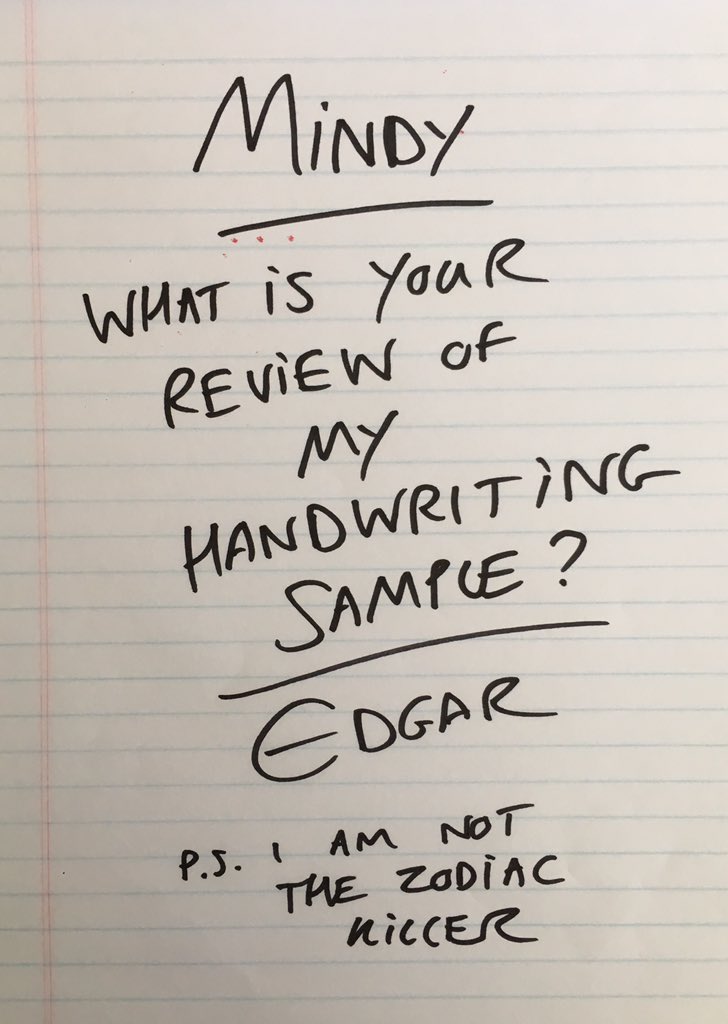 MiNDY
WHAT iS YOUR
REViEW OF
MY
HANDWRITiNG
SAMPLE?
EDGAR
P.S. I AM NOT
THE ZODiAC
KiLLER